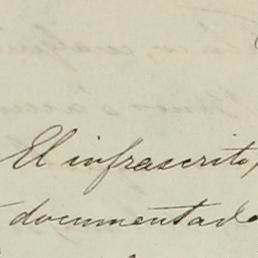 El infrascrito,
documentado